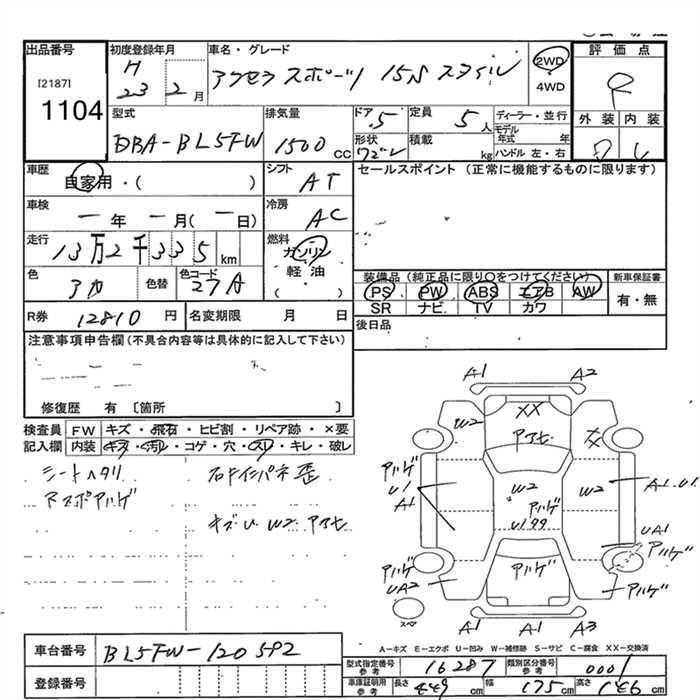 出品番号 初度登録年月 車名・グレード 2WD 評価点
[2187] H アクセラスポーツ 15S スタイル 4WD R
1104 23 2月
型式 排気量 ドア 5 定員 5人 ディーラー・並行 外装 内装
DBA-BL5FW 1500cc 形状 積載 kg モデル年式 年 ハンドル 左・右
車歴 自家用・( ) シフト AT セールスポイント (正常に機能するものに限ります)
車検 一年 一月(一日) 冷房 AC
走行 13万2千335km 燃料 ガソリン
軽油
( )
色 アカ 色替 色コード 27A 装備品(純正品に限り○をつけてください) 新車保証書
PS PW ABS エアB AW 有・無
SR ナビ TV カワ
R券 12810円 名変期限 月 日 後日品
注意事項申告欄(不具合内容等は具体的に記入して下さい)
修復歴 有 〔箇所 〕
検査員 FW キズ・飛石・ヒビ割・リペア跡・×要
記入欄 内装 キズ・汚れ・コゲ・穴・スレ・キレ・破レ
シートヘタリ
キズU W2 アセ
A1 A2
W2 XX
アセ
アハゲ U1 A1 W2 アハゲ W2 A1.U1
UA1
アハゲ UA2 アハゲ アハゲ
アハゲ
スペア A1 A1 A3
A-キズ E-エクボ U-凹み W-補修跡 S-サビ C-腐食 XX-交換済
車台番号 BL5FW-120592
型式指定番号 参考 16287 類別区分番号 参考 0001
登録番号 車庫証明用 参考 長さ 449cm 幅 175cm 高さ 146cm